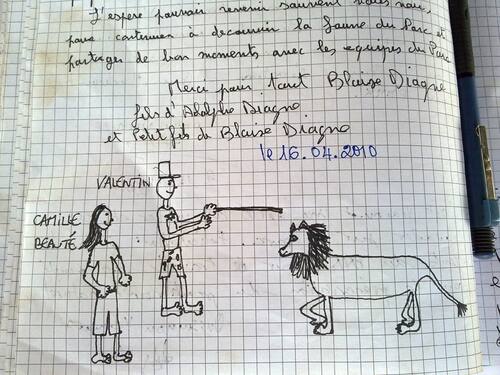 J'espère pouvoir revenir souvent
pour continuer à découvrir la faune du Parc et
partager de bon moments avec les equipes du Parc
Merci pour tout Blaise Diagne
fils d'Adolphe Diagne
et Petit fils de Blaise Diagne
le 16.04.2010
VALENTIN
CAMILLE
BEAUTÉ